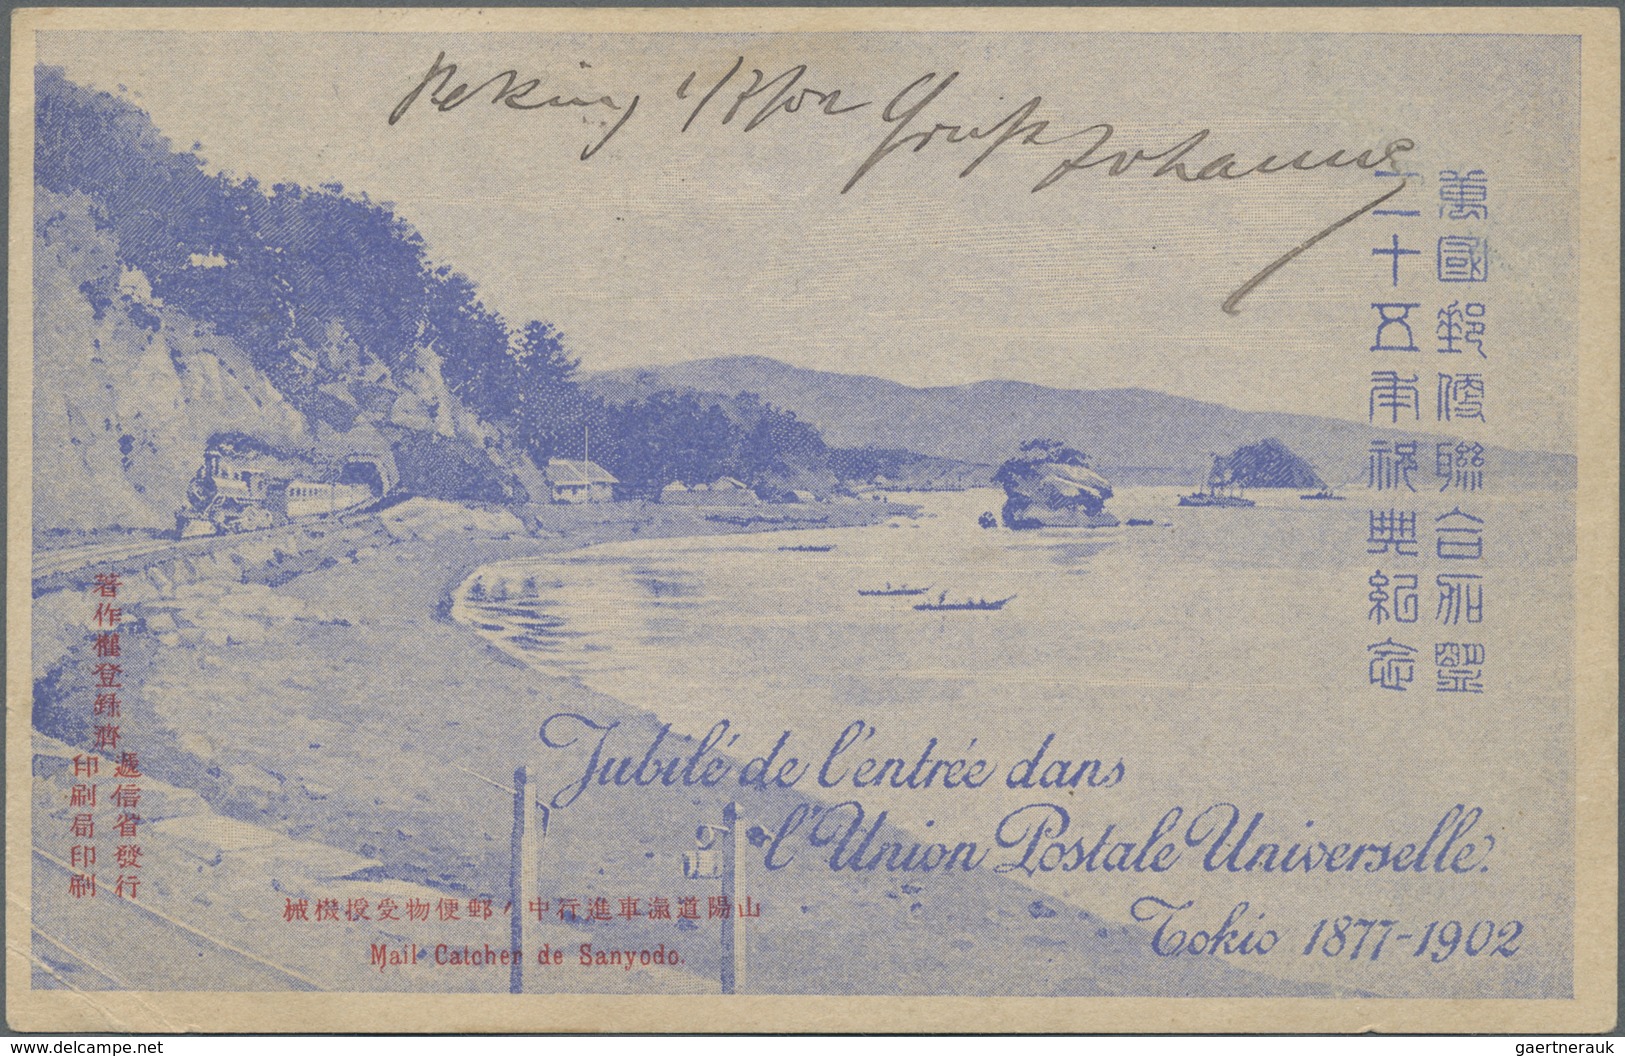 Peking 1/8/02 Gruß Johannes
萬國郵便聯合加盟
二十五年祝典紀念
著作權登錄濟
遞信省發行
印刷局印刷
Jubilé de l'entrée dans
l'Union Postale Universelle.
Tokio 1877-1902
械機授受物便郵ノ中行進車滊道陽山
Mail Catcher de Sanyodo.
© www.delcampe.net
gaertnerauk